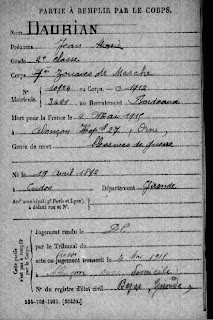 PARTIE À REMPLIR PAR LE CORPS.
Nom DAURIAN
Prénoms Jean
Grade 2e classe
Corps 7me Zouaves de Marche
N° 10924 au Corps. — Cl. 1912
Matricule. 3291 au Recrutement Bordeaux
Mort pour la France le 4 Mai 1915
à Alençon 27, Orne
Genre de mort Blessures de guerre
Né le 19 Avril 1892
à Cudos Département Gironde
Arrt municipal (pr Paris et Lyon),
à défaut rue et N°.
Cette partie n'est pas à remplir par le Corps.
Jugement rendu le
par le Tribunal de
acte ou jugement transcrit le 4 Mai 1915
à Alençon
N° du registre d'état civil Bazas, Gironde
534-708-1921. [26434.]